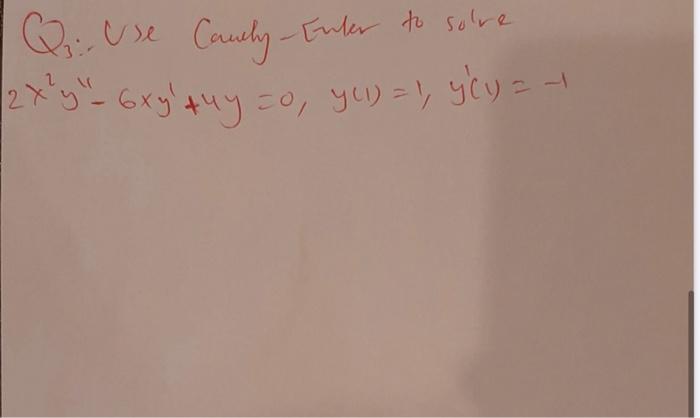 Q3:- Use Cauchy-Euler to solve
2x²y'' - 6xy' + 4y = 0, y(1) = 1, y'(1) = -1